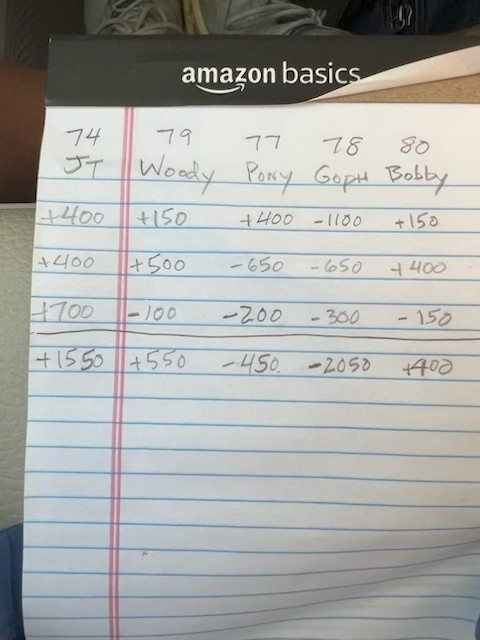 amazon basics
74 79 77 78 80
JT Woody Pony Goph Bobby
+400 +150 +400 -1100 +150
+400 +500 -650 -650 +400
+700 -100 -200 -300 -150
+1550 +550 -450 -2050 +400